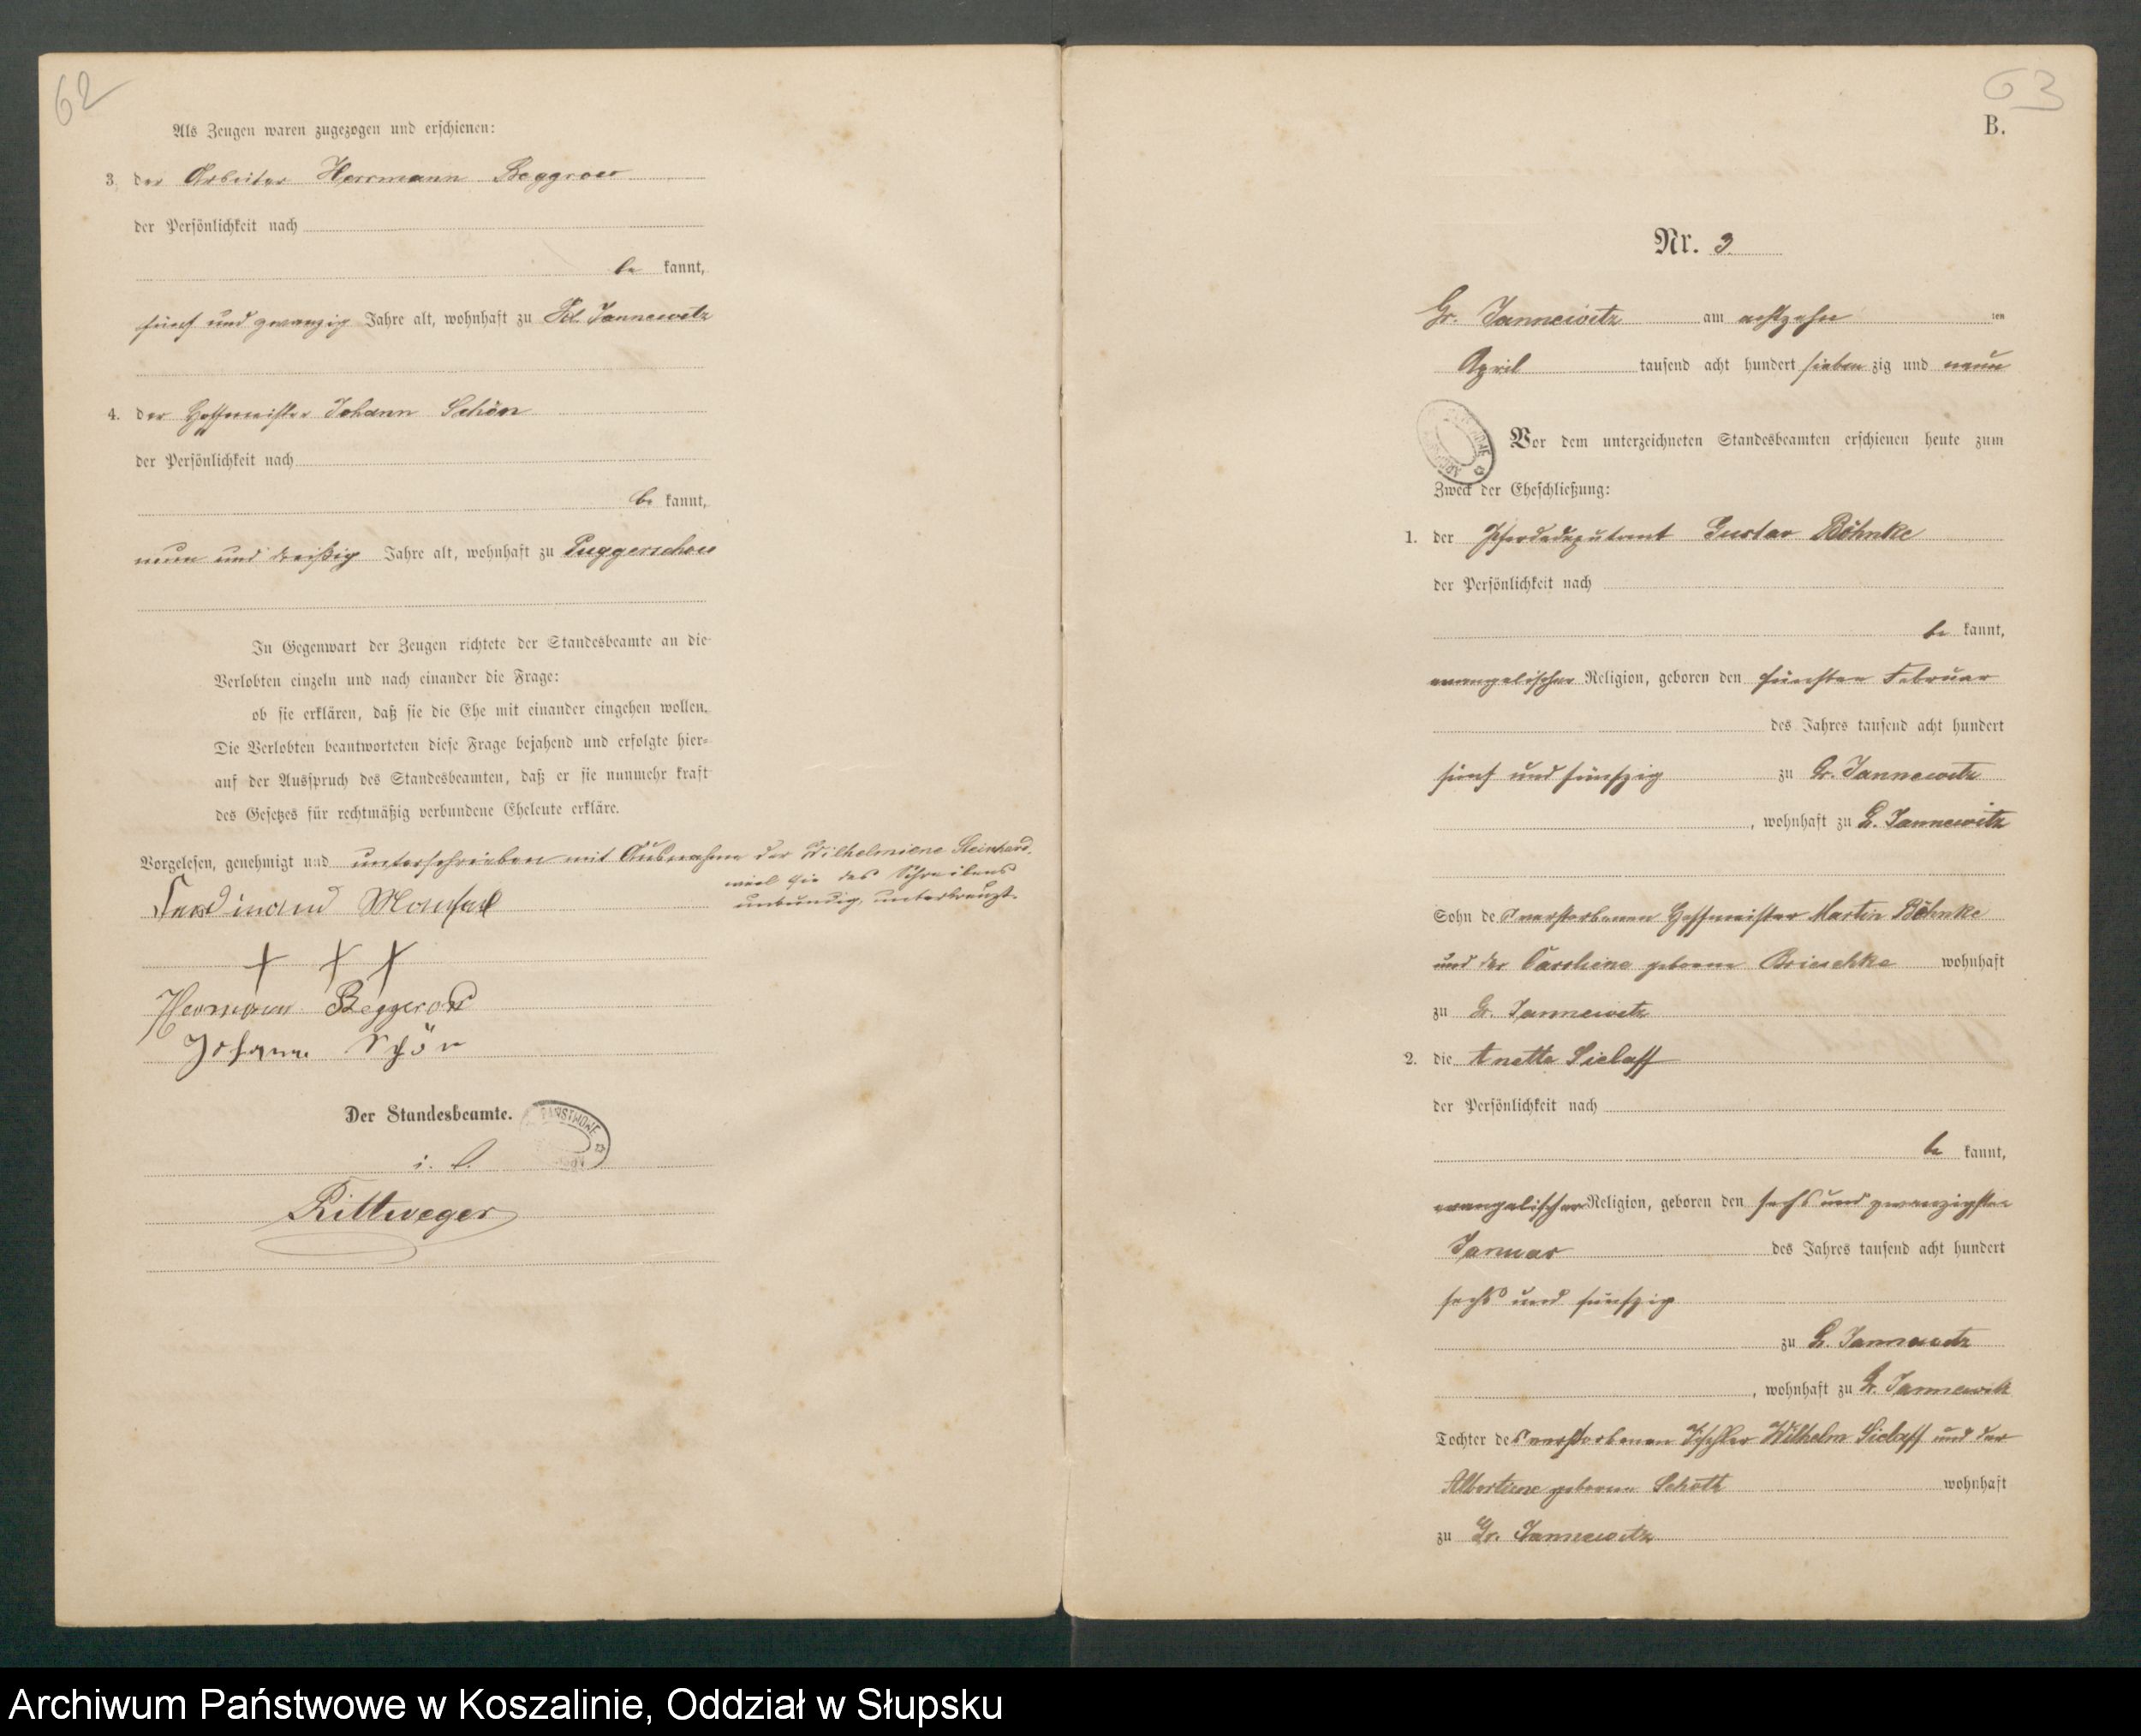 62
Als Zeugen waren zugezogen und erschienen:
3. der Arbeiter Herrmann Beggrow
der Persönlichkeit nach
be kannt,
fünf und zwanzig Jahre alt, wohnhaft zu Kl. Jannewitz
4. der Hoffmeister Johann Schön
der Persönlichkeit nach
be kannt,
neun und dreißig Jahre alt, wohnhaft zu Puggerschow
In Gegenwart der Zeugen richtete der Standesbeamte an die
Verlobten einzeln und nach einander die Frage:
ob sie erklären, daß sie die Ehe mit einander eingehen wollen.
Die Verlobten beantworteten diese Frage bejahend und erfolgte hier-
auf der Ausspruch des Standesbeamten, daß er sie nunmehr kraft
des Gesetzes für rechtmäßig verbundene Eheleute erkläre.
Vorgelesen, genehmigt und unterschrieben mit Ausnahme der Wilhelmiene Steinhard,
weil sie des Schreibens
unkundig, unterkreuzt.
Ferdinand
+ + +
Hermann Beggerow
Johann Schön
Der Standesbeamte.
Rittweger
63
B.
Nr. 3.
Gr. Jannewitz am achtzehn ten
April tausend acht hundert sieben zig und neun
Vor dem unterzeichneten Standesbeamten erschienen heute zum
Zweck der Eheschließung:
1. der Pferdedeputant Gustav Böhnke
der Persönlichkeit nach
be kannt,
evangelischer Religion, geboren den fünften Februar
des Jahres tausend acht hundert
fünf und fünfzig zu Gr. Jannewitz
, wohnhaft zu Gr. Jannewitz
Sohn des verstorbenen Hoffmeister Martin Böhnke
und der Caroline geborene Brieschke wohnhaft
zu Gr. Jannewitz
2. die Anette Sielaff
der Persönlichkeit nach
be kannt,
evangelischer Religion, geboren den sechs und zwanzigsten
Januar des Jahres tausend acht hundert
sechs und fünfzig
zu Gr. Jannewitz
, wohnhaft zu Gr. Jannewitz
Tochter des verstorbenen Tischler Wilhelm Sielaff und der
Albertiene geborene Schötz wohnhaft
zu Gr. Jannewitz
Archiwum Państwowe w Koszalinie, Oddział w Słupsku